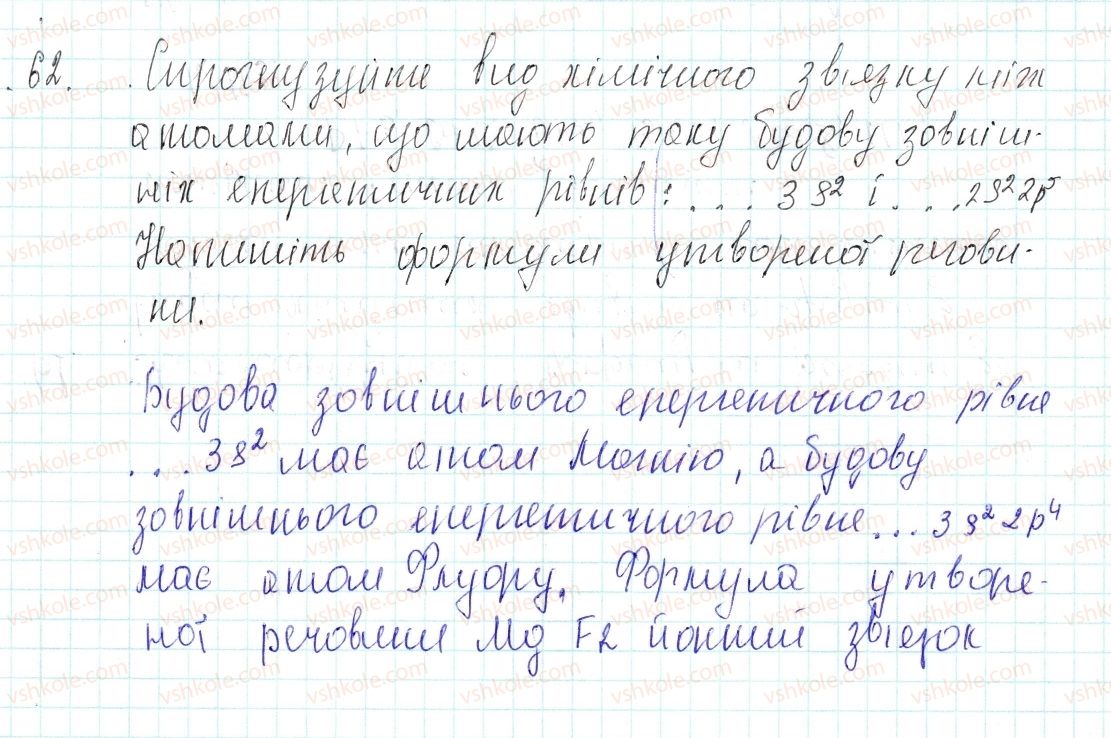 62. Спрогнузуйте вид хімічного звіязку між
атомами, що мають таку будову зовніш-
ніх енергетичних рівнів: ... 3s² і ... 2s²2p⁵
Напишіть формули утвореної речови-
ни.
Будова зовнішнього енергетичного рівня
... 3s² має атом Магнію, а будову
зовнішнього енергетичного рівня ... 3s² 2p⁴
має атом Флуору. Формула утворе-
ної речовини Mg F2 йонний звіязок